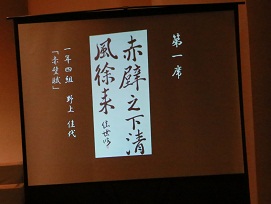 第一席
赤壁之下清
風徐来
一年四組 野上 佳代
「赤壁賦」